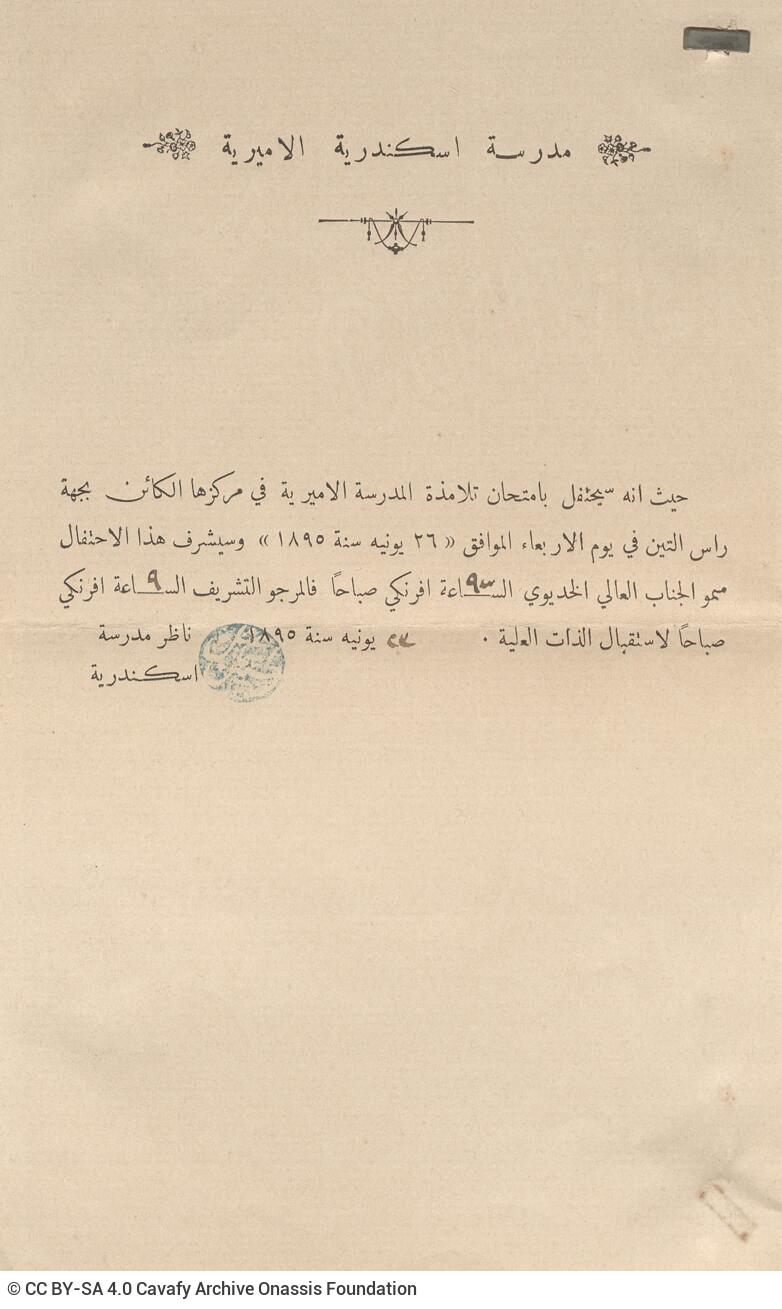 مدرسة اسكندرية الاميرية
حيث انه سيحتفل بامتحان تلامذة المدرسة الاميرية في مركزها الكائن بجهة
راس التين في يوم الاربعاء الموافق « ٢٦ يونيه سنة ١٨٩٥ » وسيشرف هذا الاحتفال
سمو الجناب العالي الخديوي الساعة افرنكي صباحاً فالمرجو التشريف الساعة ٩ افرنكي
صباحاً لاستقبال الذات العلية . ٢٣ يونيه سنة ١٨٩٥ ناظر مدرسة
اسكندرية
© CC BY-SA 4.0 Cavafy Archive Onassis Foundation